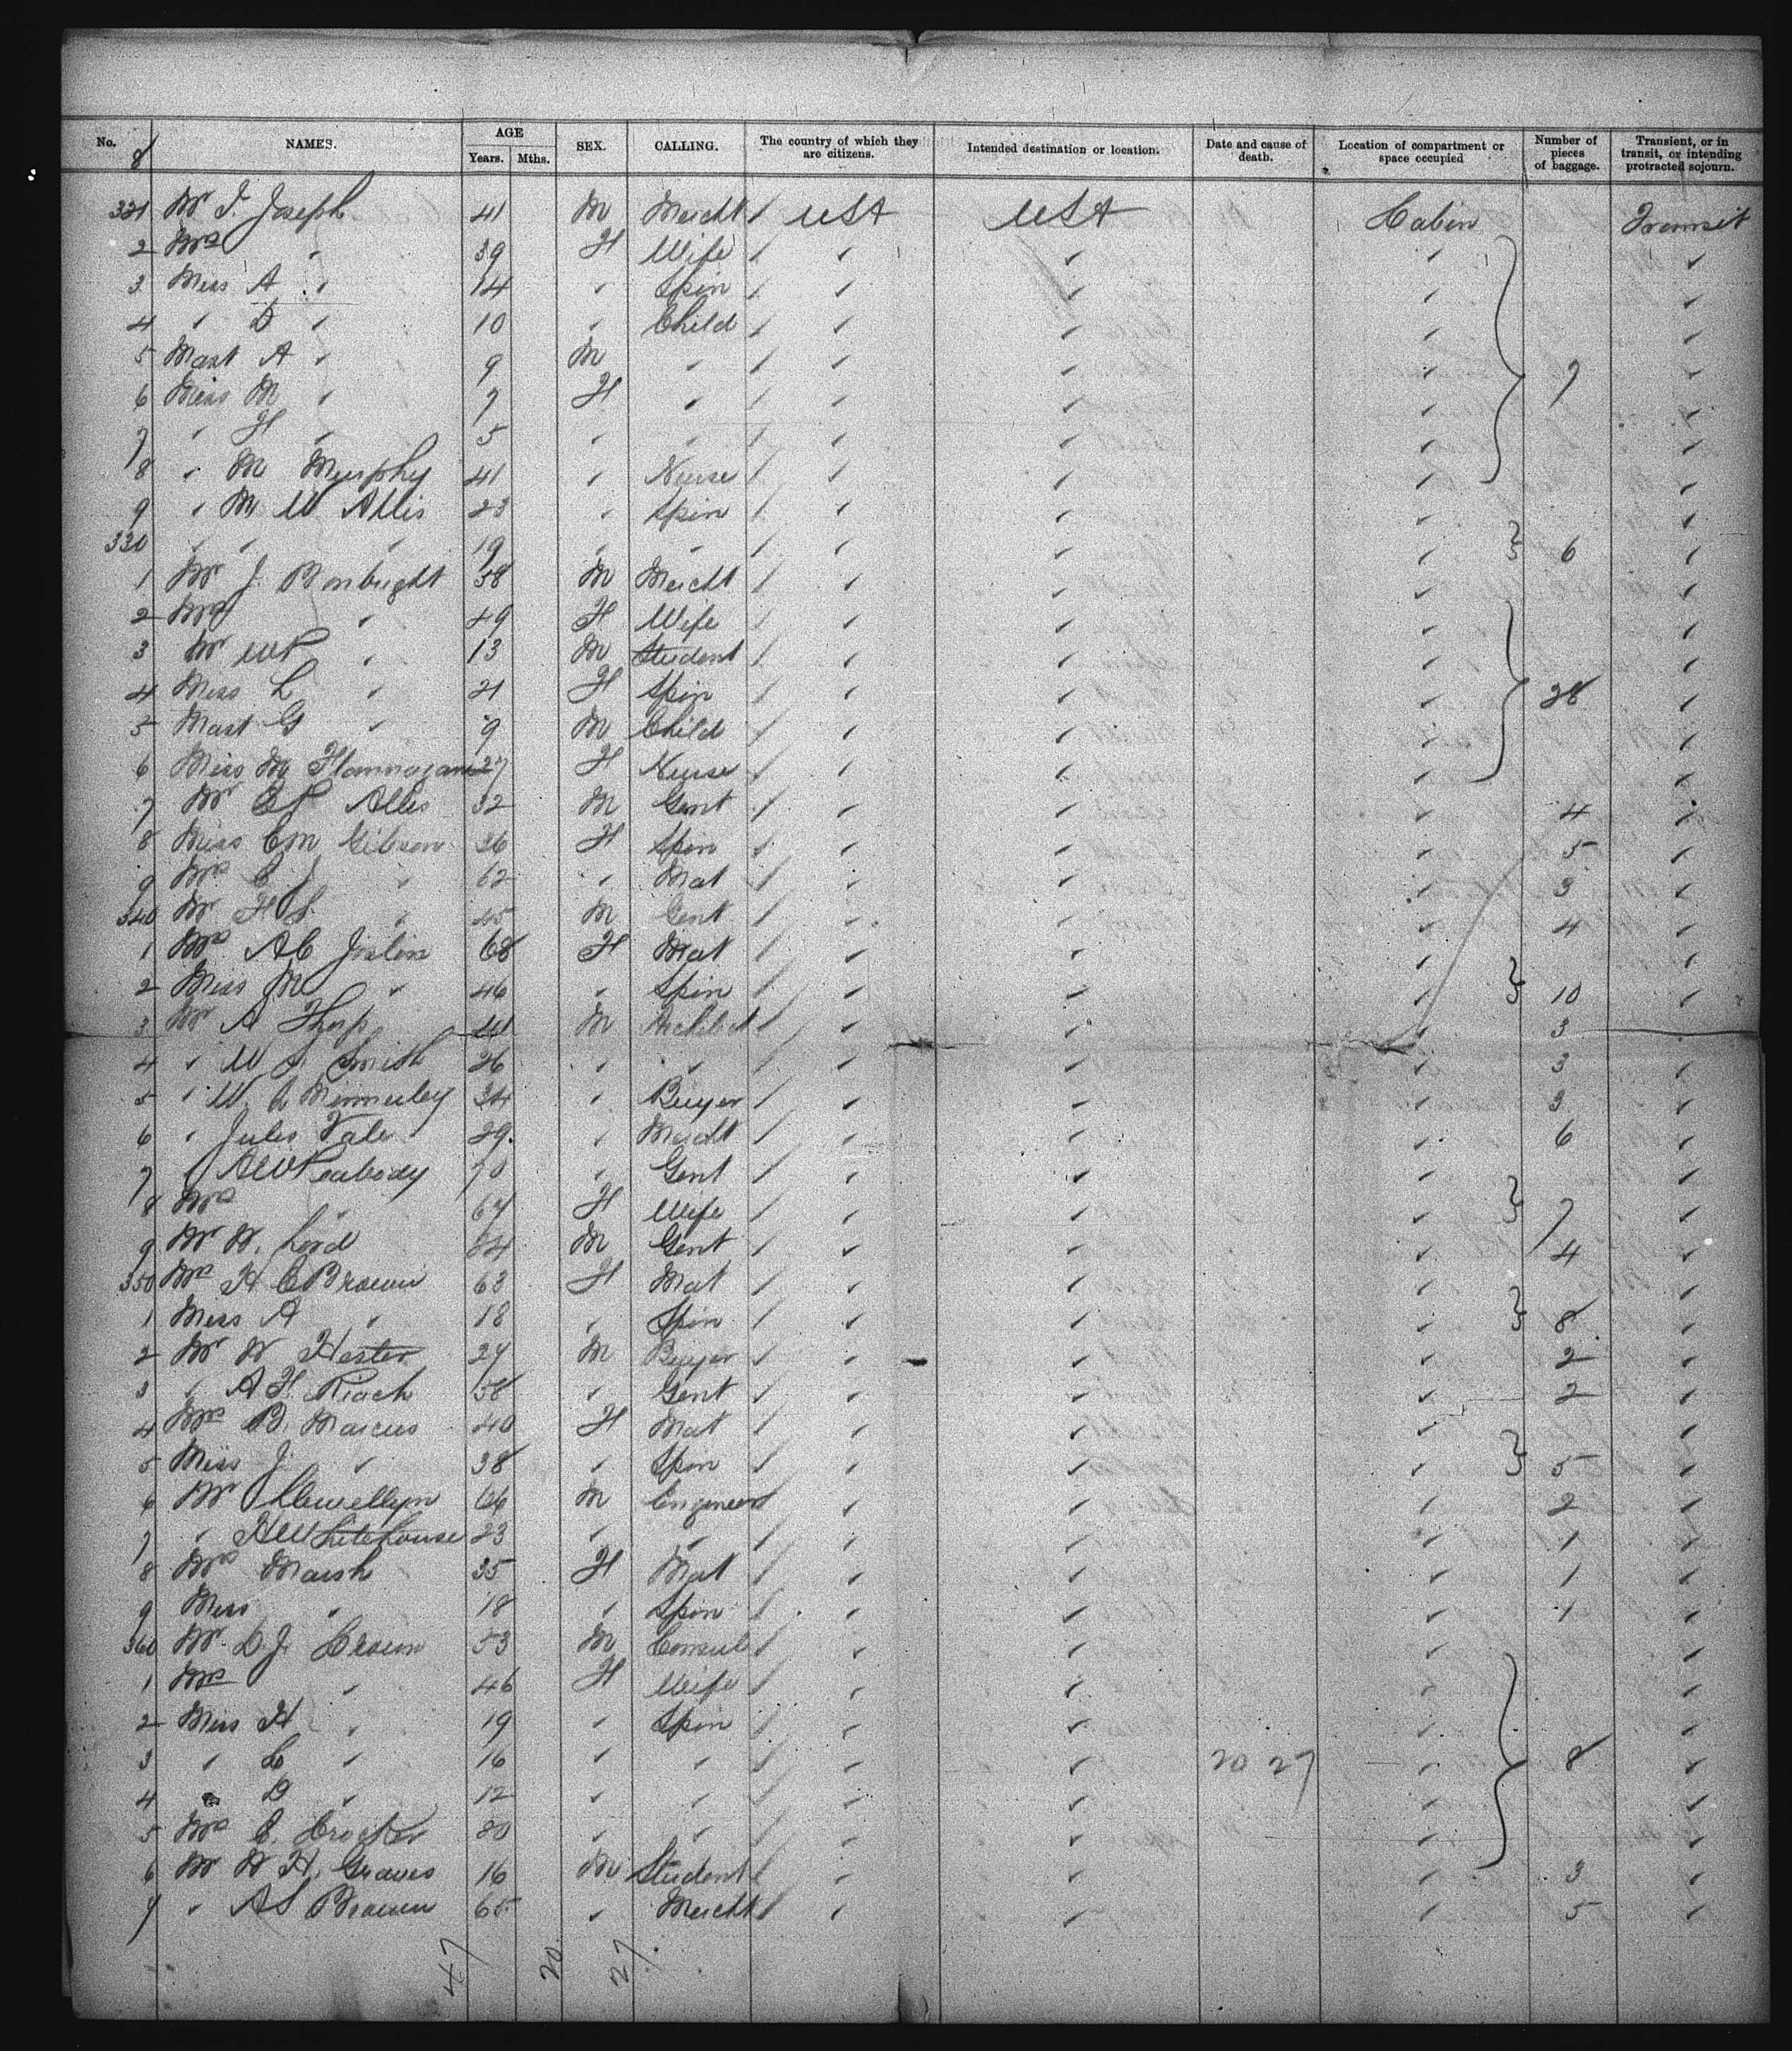 No. NAMES. AGE Years. Mths. SEX. CALLING. The country of which they are citizens. Intended destination or location. Date and cause of death. Location of compartment or space occupied Number of pieces of baggage. Transient, or in transit, or intending protracted sojourn.
8
321 Mr J. Joseph 41 M Mercht USA USA Cabin Transit
2 Mrs " 39 F Wife
3 Miss A " 14 " Spin
4 " D " 10 " Child
5 Mast A " 9 M "
6 Miss M " 7 F " 7
7 " F " 5 " "
8 " M Murphy 41 " Nurse
9 " M W Allis 23 " Spin
330 " " " 19 " " 6
1 Mr J. Bonbright 58 M Mercht
2 Mrs " 49 F Wife
3 Mr WP " 13 M Student
4 Miss L " 21 F Spin 28
5 Mast G " 9 M Child
6 Miss M Flannagan 27 F Nurse
7 Mr EP Allis 32 M Gent 4
8 Miss EM Gibson 36 F Spin 5
9 Mrs C J " 62 " Mat 3
340 Mr H S. " 45 M Gent 4
1 Mrs AC Joslin 68 F Mat
2 Miss M " 46 " Spin 10
3 Mr A Thorp M Architect 3
4 " W J. Smith 26 " " 3
5 " W. A 34 " Buyer 3
6 " Jules Vale 29 " Mercht 6
7 " AW Peabody 70 " Gent
8 Mrs " 64 F Wife 7
9 Mr W. Lord 64 M Gent 4
350 Mrs H C Brown 63 F Mat
1 Miss A " 18 " Spin 8
2 Mr W Hester 24 M Buyer 2
3 " A F. Riach 58 " Gent 2
4 Mrs B. Marcus 40 F Mat
5 Miss J. " 38 " Spin 5
6 Mr Llewellyn 66 M Engineer 2
7 " H Whitehouse 23 " " 1
8 Mrs Marsh 35 F Mat 1
9 Miss " 18 " Spin 1
360 Mr L J. Crown 53 M Consul
1 Mrs " 46 F Wife
2 Miss H " 19 " Spin
3 " L " 16 " " 20 27 8
4 " D " 12 " "
5 Mrs E. Crocker 20 " "
6 Mr W H. Graves 16 M Student 3
7 " AS Brown 65 " Mercht 5
47 20 27